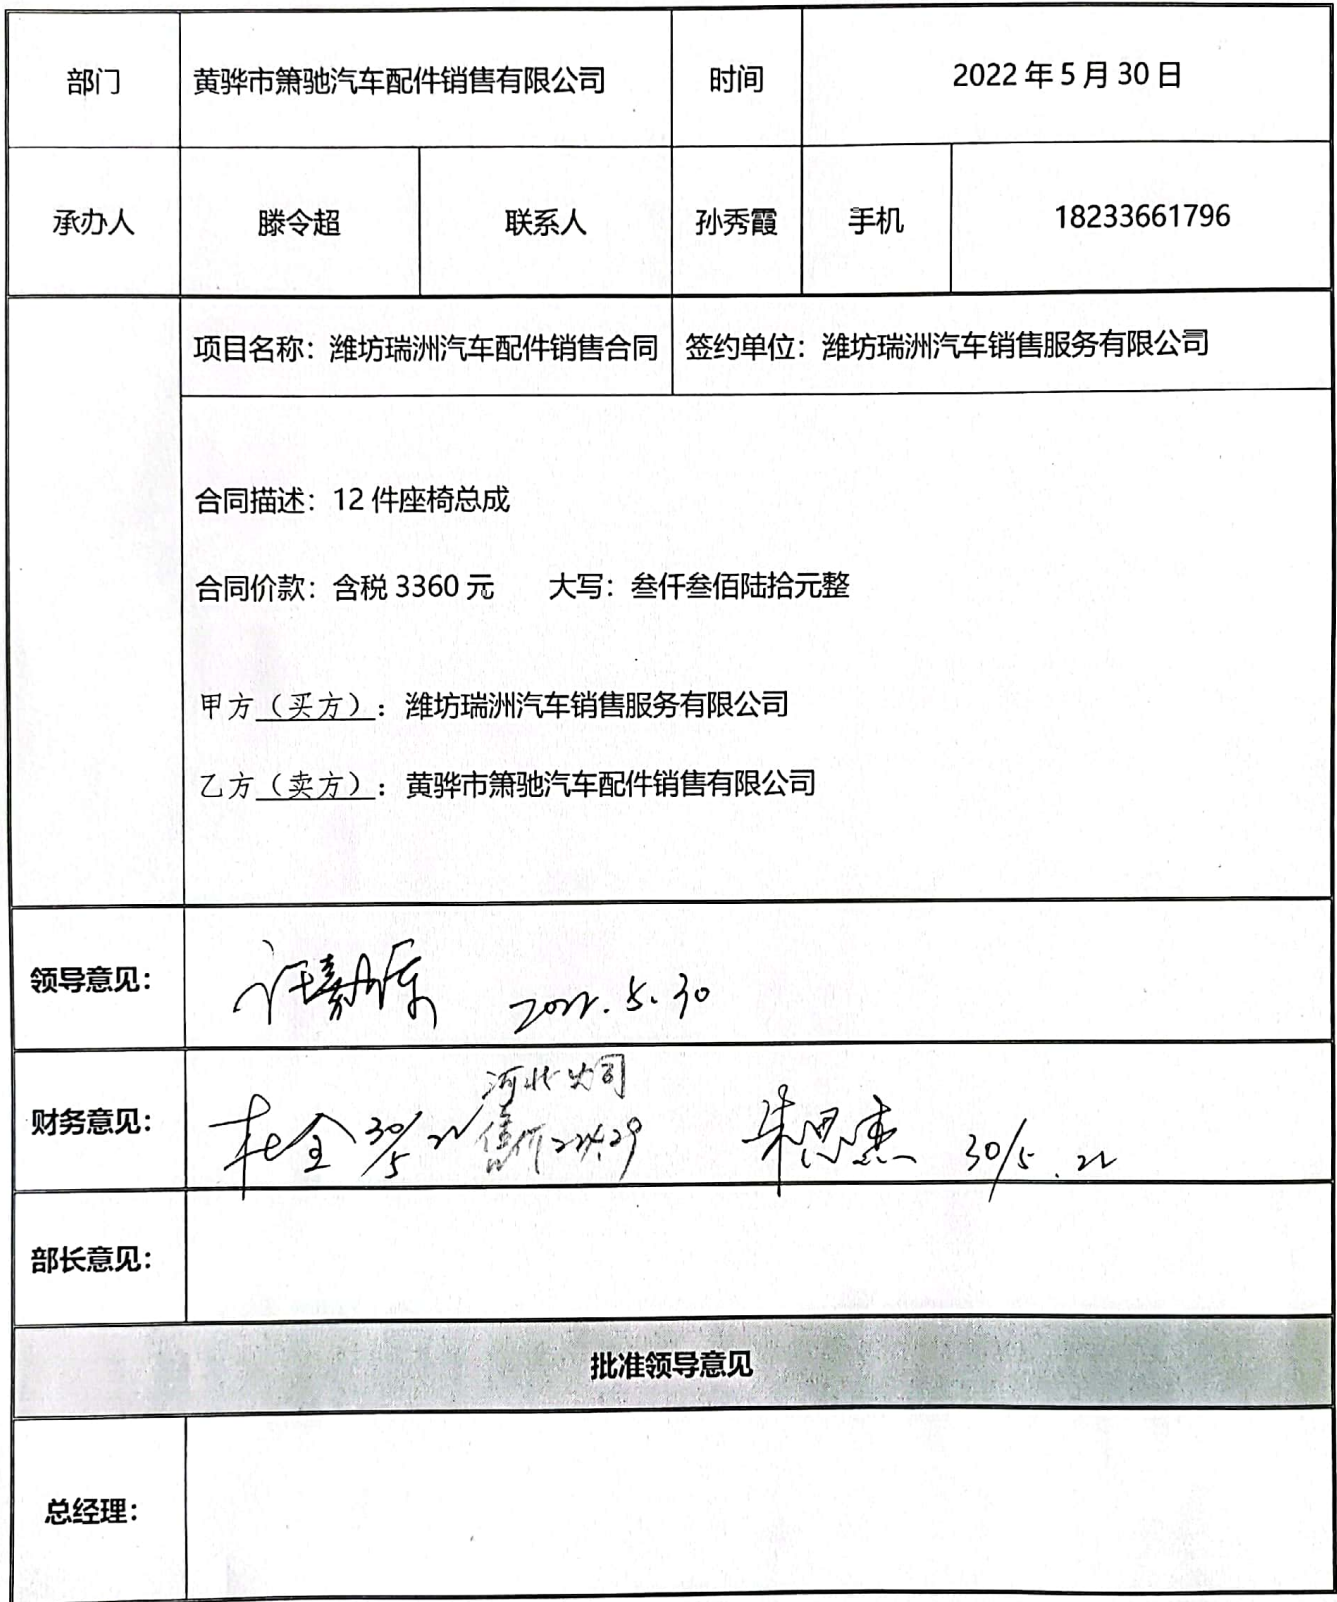 部门 黄骅市箫驰汽车配件销售有限公司 时间 2022年5月30日
承办人 滕令超 联系人 孙秀霞 手机 18233661796
项目名称：潍坊瑞洲汽车配件销售合同 签约单位：潍坊瑞洲汽车销售服务有限公司
合同描述：12件座椅总成
合同价款：含税3360元 大写：叁仟叁佰陆拾元整
甲方（买方）：潍坊瑞洲汽车销售服务有限公司
乙方（卖方）：黄骅市箫驰汽车配件销售有限公司
领导意见： 2022.5.30
河北公司
财务意见： 杜全 30/5 22 售价 朱思杰 30/5.22
部长意见：
批准领导意见
总经理：